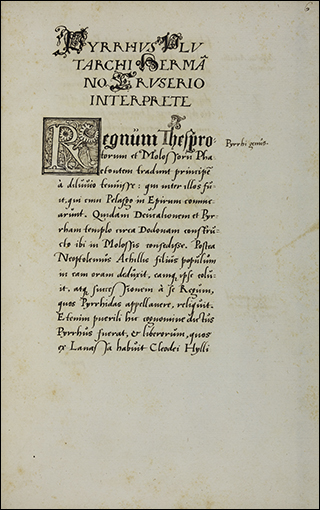 6
PYRRHUS PLU
TARCHI HERMĀ
NO CRUSERIO
INTERPRETE
Regnūm Thespro
torum et Molossorū Pha
etontem tradunt principē
à diluvio tenuisse: qui inter illos fu
it, qui cum Pelasgo in Epirum comme
arunt. Quidam Deucalionem et Pyr
rham templo circa Dodonam constru
cto ibi in Molossis consedisse. Postea
Neoptolemus Achillis filius populum
in eam oram deduxit, eamq, ipse tenu
it, atq, successionem à se Regum,
quos Pyrrhidas appellavere, reliquit.
Etenim puerili hic cognomine dictus
Pyrrhus fuerat, & liberorum, quos
ex Lanassa habuit Cleodei Hylli
Pyrrhi genus.